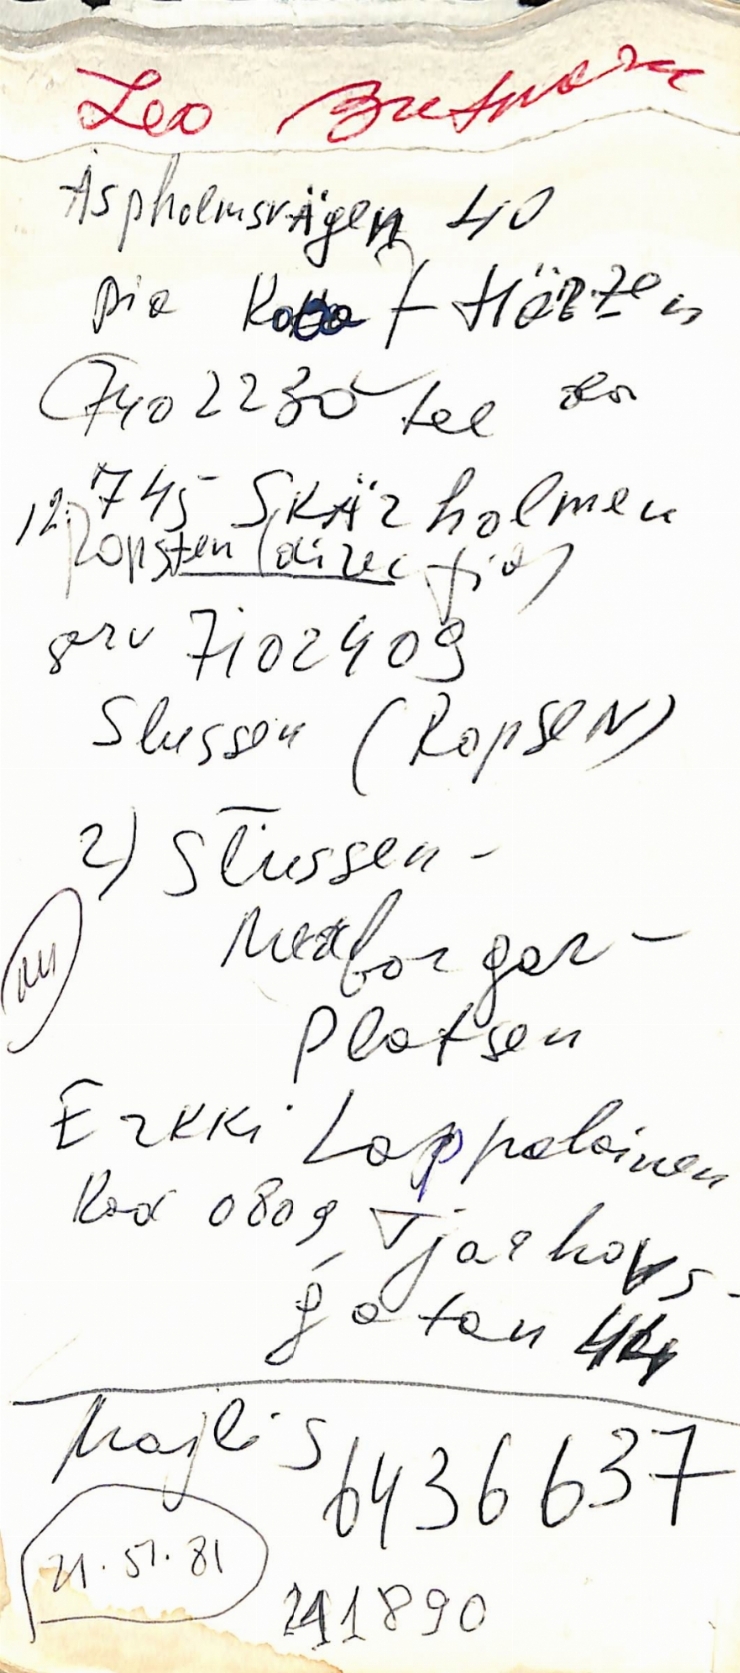 Leo
Äspholmsvägen 40
pia Kotta / Härzen
7402230 tel
12. 745 SKÄrholmen
Ropsten (direction)
serv 7102409
Slussen (RopseN)
2) Slussen -
Medborgar -
Platsen
Erkki Lappalainen
Kod 0809 Tjärhovs-
gatan 44
Majlis 6436637
21.51.81
211890